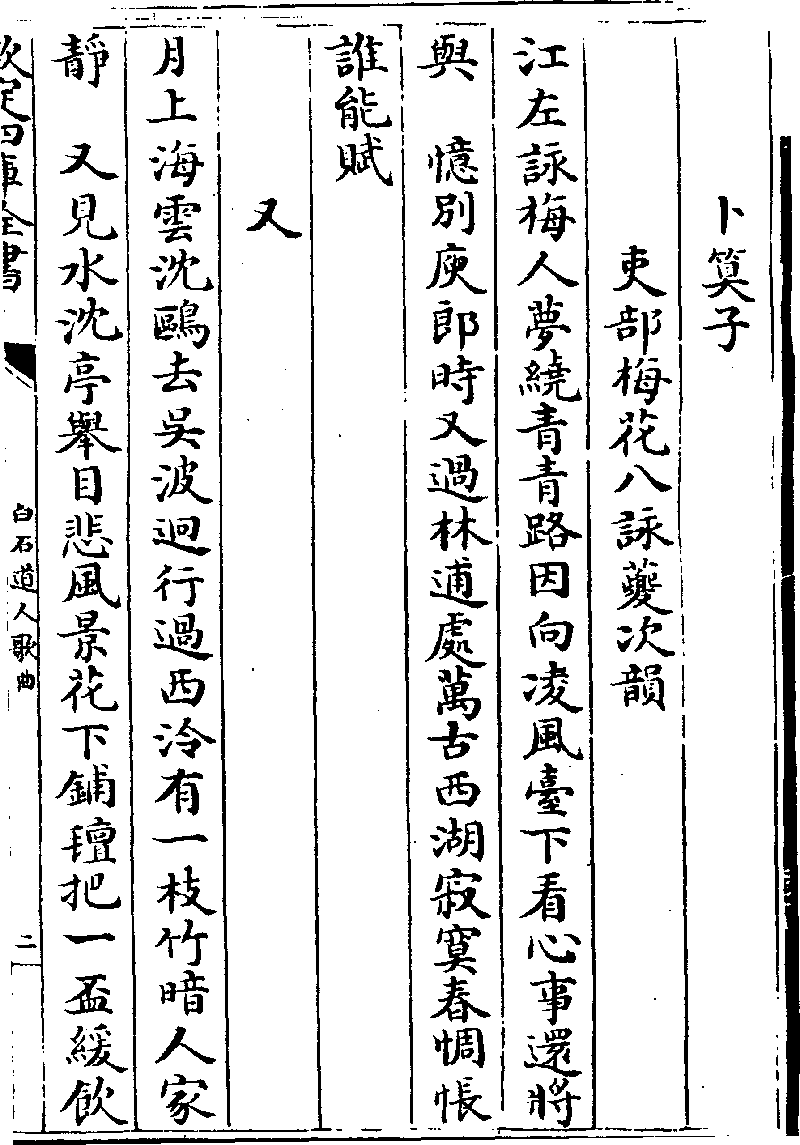 卜筭子
吏部梅花八詠夔次韻
江左詠梅人夢繞青青路因向凌風臺下看心事還將
與　憶別庾郎時又過林逋處萬古西湖寂寞春惆悵
誰能賦
又
月上海雲沈鷗去吳波迥行過西泠有一枝竹暗人家
靜　又見水沈亭舉目悲風景花下鋪氊把一盃緩飲
欽定四庫全書
白石道人歌曲
二